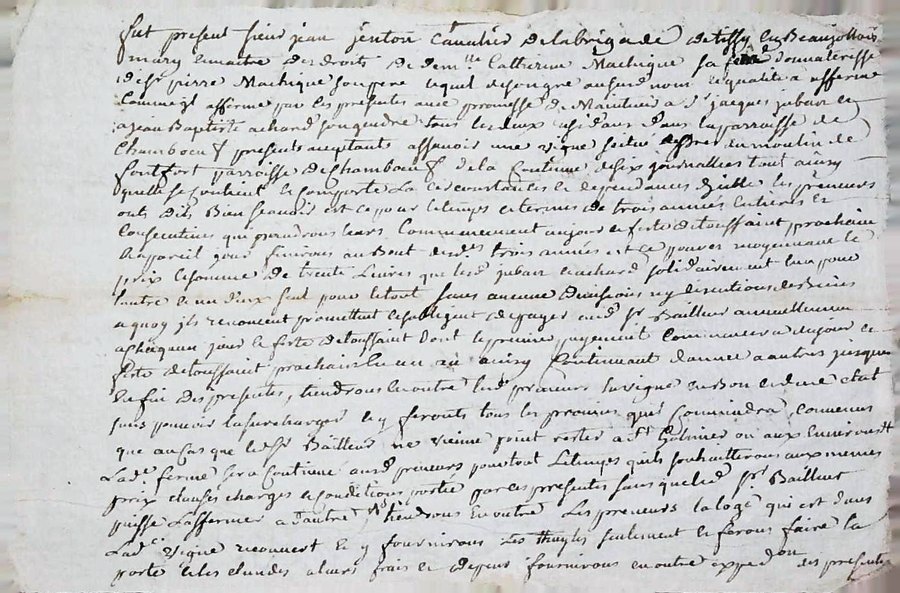 fut present sieur jean jenton Cavalier de la brigade de tissy en Beaujollois
mary et maitre des droits de dem.lle Catherine Machique sa femme donnateresse
de sr pierre Machique son pere lequel de son gre audit nom et qualité a afferme
Comme il afferme par ces presentes avec promesse de Maintenir a sr jacques jubau et
a jean Baptiste achard son gendre tous les deux residans dans la parroisse de
Chamboeuf presents acceptants assavoir une vigne scitué du moulin de
fontfort parroisse de Chamboeuf de la Contenue de six journallees tout ainsy
quelle se contient et comporte les circonstances et dependances les preneurs
ont dit Bien scavoir est ce pour le temps et termes de trois années Entieres et
Consecutives qui prendront leurs Commencement au jour et feste de toussaint prochaine
et a pareil jour finiront au Bout desd. trois années est ce pour et moyennant le
prix et somme de trente Livres que lesd jubau et achard solidairement l'un pour
l'autre et un d'eux seul pour le tout sans aucune division ny discution de Biens
a quoy ils renoncent promettent et s'obligent de payer aud sr Bailleur annuellement
a chacque jour et feste de toussaint dont le premier payement Commencera au jour et
feste de toussaint prochain en un an ainsy Continuant d'année a autres jusques
En fin des presentes, tiendront En outre lesd preneurs la vigne en Bon et due etat
sans pouvoir la surcharger et y feront tous les provins qui Conviendra, Convenus
que au Cas que led sr Bailleur ne vienne point rester a st Galmier ou aux Environs
Lad.e ferme sera Continue aux d preneurs pour tout Le temps quils souhaitteront aux memes
prix clauses charges et conditions portée par ces presentes sans que led sr Bailleur
puisse L'affermer a d'autre, tiendront En outre Les preneurs la loge qui est dans
Lad.e vigne recouvert et y fourniront les thuyles seulement et feront faire la
porte et les a leurs frais et depens fourniront en outre expedon des presentes